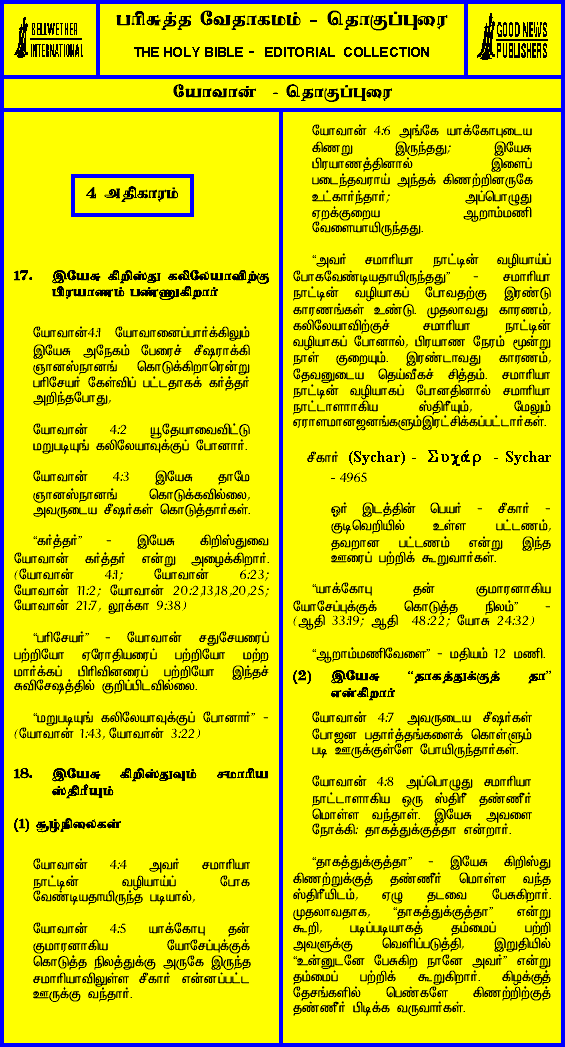 BELLWETHER
INTERNATIONAL
பரிசுத்த வேதாகமம் - தொகுப்புரை
THE HOLY BIBLE - EDITORIAL COLLECTION
GOOD NEWS
PUBLISHERS
யோவான் - தொகுப்புரை
4 அதிகாரம்
17. இயேசு கிறிஸ்து கலிலேயாவிற்கு
பிரயாணம் பண்ணுகிறார்
யோவான்4:1 யோவானைப்பார்க்கிலும்
இயேசு அநேகம் பேரைச் சீஷராக்கி
ஞானஸ்நானங் கொடுக்கிறாரென்று
பரிசேயர் கேள்விப் பட்டதாகக் கர்த்தர்
அறிந்தபோது,
யோவான் 4:2 யூதேயாவைவிட்டு
மறுபடியுங் கலிலேயாவுக்குப் போனார்.
யோவான் 4:3 இயேசு தாமே
ஞானஸ்நானங் கொடுக்கவில்லை,
அவருடைய சீஷர்கள் கொடுத்தார்கள்.
“கர்த்தர்” - இயேசு கிறிஸ்துவை
யோவான் கர்த்தர் என்று அழைக்கிறார்.
(யோவான் 4:1; யோவான் 6:23;
யோவான் 11:2; யோவான் 20:2,13,18,20,25;
யோவான் 21:7, லூக்கா 9:38)
“பரிசேயர்” - யோவான் சதுசேயரைப்
பற்றியோ ஏரோதியரைப் பற்றியோ மற்ற
மார்க்கப் பிரிவினரைப் பற்றியோ இந்தச்
சுவிசேஷத்தில் குறிப்பிடவில்லை.
“மறுபடியுங் கலிலேயாவுக்குப் போனார்” -
(யோவான் 1:43, யோவான் 3:22)
18. இயேசு கிறிஸ்துவும் சமாரிய
ஸ்திரீயும்
(1) சூழ்நிலைகள்
யோவான் 4:4 அவர் சமாரியா
நாட்டின் வழியாய்ப் போக
வேண்டியதாயிருந்த படியால்,
யோவான் 4:5 யாக்கோபு தன்
குமாரனாகிய யோசேப்புக்குக்
கொடுத்த நிலத்துக்கு அருகே இருந்த
சமாரியாவிலுள்ள சீகார் என்னப்பட்ட
ஊருக்கு வந்தார்.
யோவான் 4:6 அங்கே யாக்கோபுடைய
கிணறு இருந்தது; இயேசு
பிரயாணத்தினால் இளைப்
படைந்தவராய் அந்தக் கிணற்றினருகே
உட்கார்ந்தார்; அப்பொழுது
ஏறக்குறைய ஆறாம்மணி
வேளையாயிருந்தது.
“அவர் சமாரியா நாட்டின் வழியாய்ப்
போகவேண்டியதாயிருந்தது” - சமாரியா
நாட்டின் வழியாகப் போவதற்கு இரண்டு
காரணங்கள் உண்டு. முதலாவது காரணம்,
கலிலேயாவிற்குச் சமாரியா நாட்டின்
வழியாகப் போனால், பிரயாண நேரம் மூன்று
நாள் குறையும். இரண்டாவது காரணம்,
தேவனுடைய தெய்வீகச் சித்தம். சமாரியா
நாட்டின் வழியாகப் போனதினால் சமாரியா
நாட்டாளாகிய ஸ்திரீயும், மேலும்
ஏராளமானஜனங்களும்இரட்சிக்கப்பட்டார்கள்.
சீகார் (Sychar) - Συχάρ - Sychar
- 4965
ஓர் இடத்தின் பெயர் - சீகார் -
குடிவெறியில் உள்ள பட்டணம்,
தவறான பட்டணம் என்று இந்த
ஊரைப் பற்றிக் கூறுவார்கள்.
“யாக்கோபு தன் குமாரனாகிய
யோசேப்புக்குக் கொடுத்த நிலம்” -
(ஆதி 33:19; ஆதி 48:22; யோசு 24:32)
“ஆறாம்மணிவேளை” - மதியம் 12 மணி.
(2) இயேசு “தாகத்துக்குத் தா”
என்கிறார்
யோவான் 4:7 அவருடைய சீஷர்கள்
போஜன பதார்த்தங்களைக் கொள்ளும்
படி ஊருக்குள்ளே போயிருந்தார்கள்.
யோவான் 4:8 அப்பொழுது சமாரியா
நாட்டாளாகிய ஒரு ஸ்திரீ தண்ணீர்
மொள்ள வந்தாள். இயேசு அவளை
நோக்கி: தாகத்துக்குத்தா என்றார்.
“தாகத்துக்குத்தா” - இயேசு கிறிஸ்து
கிணற்றுக்குத் தண்ணீர் மொள்ள வந்த
ஸ்திரீயிடம், ஏழு தடவை பேசுகிறார்.
முதலாவதாக, “தாகத்துக்குத்தா” என்று
கூறி, படிப்படியாகத் தம்மைப் பற்றி
அவளுக்கு வெளிப்படுத்தி, இறுதியில்
“உன்னுடனே பேசுகிற நானே அவர்” என்று
தம்மைப் பற்றிக் கூறுகிறார். கிழக்குத்
தேசங்களில் பெண்களே கிணற்றிற்குத்
தண்ணீர் பிடிக்க வருவார்கள்.